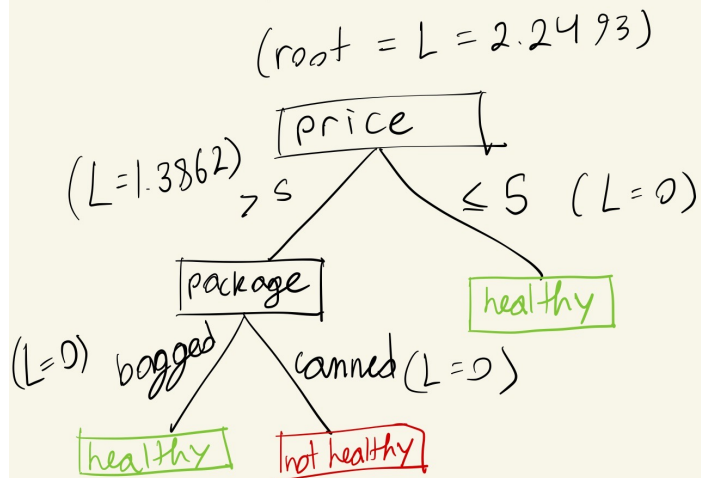 (root = L = 2.2493)
price
(L=1.3862) > 5
≤ 5 (L=0)
package
healthy
(L=0) bagged
canned (L=0)
healthy
not healthy